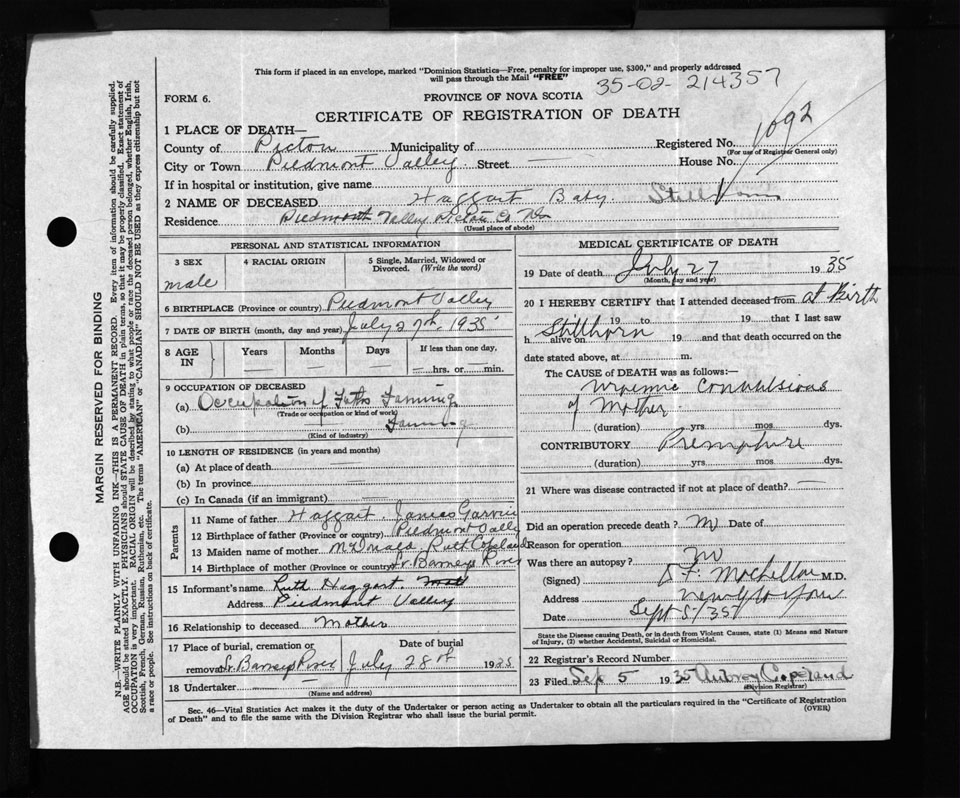 This form if placed in an envelope, marked "Dominion Statistics—Free, penalty for improper use, $300," and properly addressed
will pass through the Mail "FREE"
35-02-214357
FORM 6.
PROVINCE OF NOVA SCOTIA
CERTIFICATE OF REGISTRATION OF DEATH
1692
1 PLACE OF DEATH—
County of Pictou Municipality of Registered No.
(For use of Registrar General only)
City or Town Piedmont Valley Street House No.
If in hospital or institution, give name
2 NAME OF DECEASED Haggart Baby Stillborn
Residence Piedmont Valley Pictou Co NS
(Usual place of abode)
PERSONAL AND STATISTICAL INFORMATION
3 SEX 4 RACIAL ORIGIN 5 Single, Married, Widowed or
Divorced. (Write the word)
male
6 BIRTHPLACE (Province or country) Piedmont Valley
7 DATE OF BIRTH (month, day and year) July 27th, 1935
8 AGE IN Years Months Days If less than one day,
hrs. or min.
9 OCCUPATION OF DECEASED
(a) Occupation of Farming
(Trade or occupation or kind of work)
(b) Farming
(Kind of industry)
10 LENGTH OF RESIDENCE (in years and months)
(a) At place of death
(b) In province
(c) In Canada (if an immigrant)
Parents
11 Name of father Haggart James
12 Birthplace of father (Province or country) Piedmont Valley
13 Maiden name of mother Ruth Copeland
14 Birthplace of mother (Province or country) Barneys River
15 Informant's name Ruth Haggart
Address Piedmont Valley
16 Relationship to deceased Mother
17 Place of burial, cremation or
removal Barneys River
Date of burial
July 28th 1935
18 Undertaker
(Name and address)
MEDICAL CERTIFICATE OF DEATH
19 Date of death July 27 1935
(Month, day and year)
20 I HEREBY CERTIFY that I attended deceased from at Birth
Stillborn 19 to 19 that I last saw
h alive on 19 and that death occurred on the
date stated above, at m.
The CAUSE of DEATH was as follows:—
Uraemic Convulsions
of Mother
(duration) yrs mos dys.
CONTRIBUTORY Premature
(duration) yrs mos dys.
21 Where was disease contracted if not at place of death?
Did an operation precede death? No Date of
Reason for operation
Was there an autopsy? No
(Signed) M.D.
Address
Date Sept 5/35
State the Disease causing Death, or in death from Violent Causes, state (1) Means and Nature
of Injury, (2) whether Accidental, Suicidal or Homicidal.
22 Registrar's Record Number
23 Filed Sep 5 1935 Aubrey Copeland
(Division Registrar)
Sec. 46—Vital Statistics Act makes it the duty of the Undertaker or person acting as Undertaker to obtain all the particulars required in the "Certificate of Registration
of Death" and to file the same with the Division Registrar who shall issue the burial permit.
(OVER)
MARGIN RESERVED FOR BINDING
N.B.—WRITE PLAINLY WITH UNFADING INK—THIS IS A PERMANENT RECORD. Every item of information should be carefully supplied.
AGE should be stated EXACTLY. PHYSICIANS should STATE CAUSE OF DEATH in plain terms, so that it may be properly classified. Exact statement of
OCCUPATION is very important. RACIAL ORIGIN will be described by stating to what people or race the deceased person belonged, whether English, Irish,
Scottish, French, German, Russian, Ruthenian, etc. The terms "AMERICAN" or "CANADIAN" SHOULD NOT BE USED as they express citizenship but not
a race or people. See instructions on back of certificate.